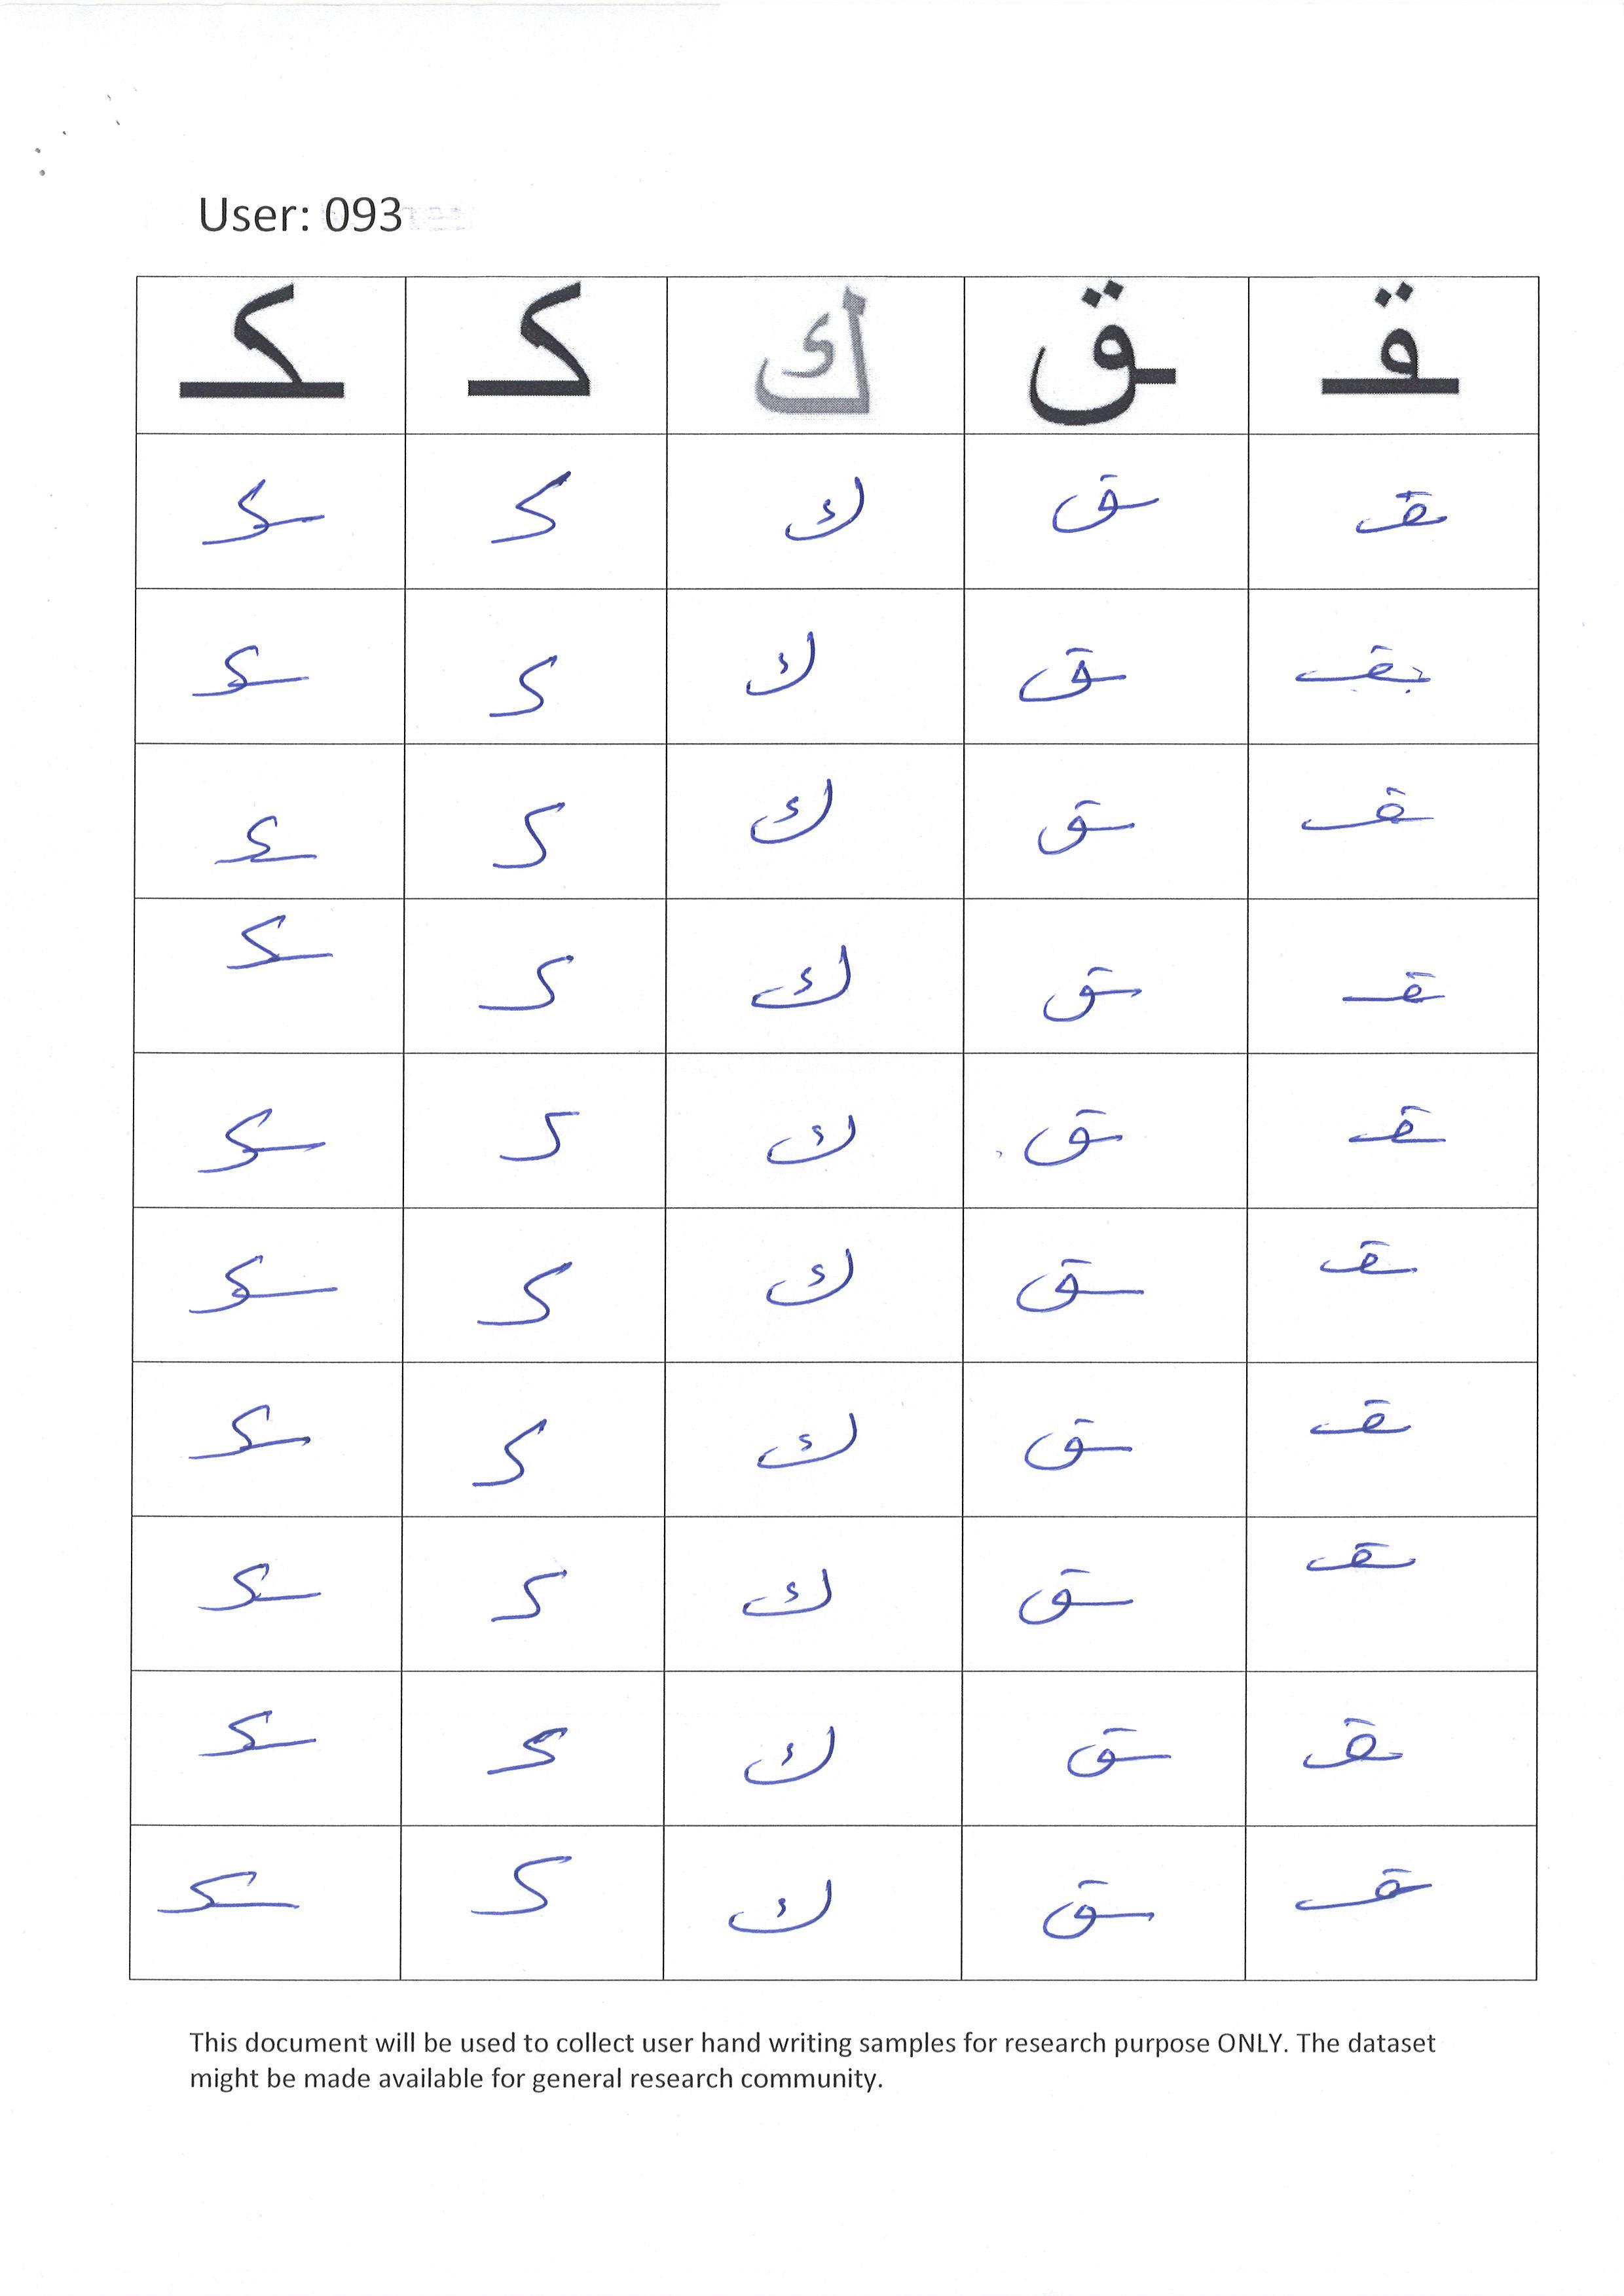 User: 093
ـقـ ـق ك كـ ـكـ
ـقـ ـق ك كـ ـكـ
بقـ ـق ك كـ ـكـ
ـقـ ـق ك كـ ـكـ
ـقـ ـق ك كـ ـكـ
ـقـ ـق ك كـ ـكـ
ـقـ ـق ك كـ ـكـ
ـقـ ـق ك كـ ـكـ
ـقـ ـق ك كـ ـكـ
ـقـ ـق ك كـ ـكـ
ـقـ ـق ك كـ ـكـ
This document will be used to collect user hand writing samples for research purpose ONLY. The dataset
might be made available for general research community.